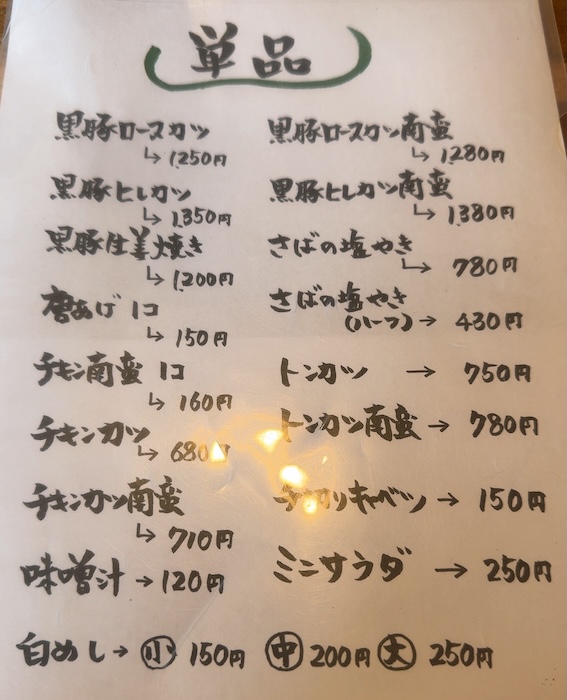 単品
黒豚ロースカツ
↳ 1,250円
黒豚ヒレカツ
↳ 1,350円
黒豚生姜焼き
↳ 1,200円
唐あげ 1コ
↳ 150円
チキン南蛮 1コ
↳ 160円
チキンカツ
↳ 680円
チキンカツ南蛮
↳ 710円
味噌汁 → 120円
黒豚ロースカツ南蛮
↳ 1,280円
黒豚ヒレカツ南蛮
↳ 1,380円
さばの塩やき
↳ 780円
さばの塩やき
(ハーフ) → 430円
トンカツ → 750円
トンカツ南蛮 → 780円
キャベツ → 150円
ミニサラダ → 250円
白めし → 小 150円 中 200円 大 250円